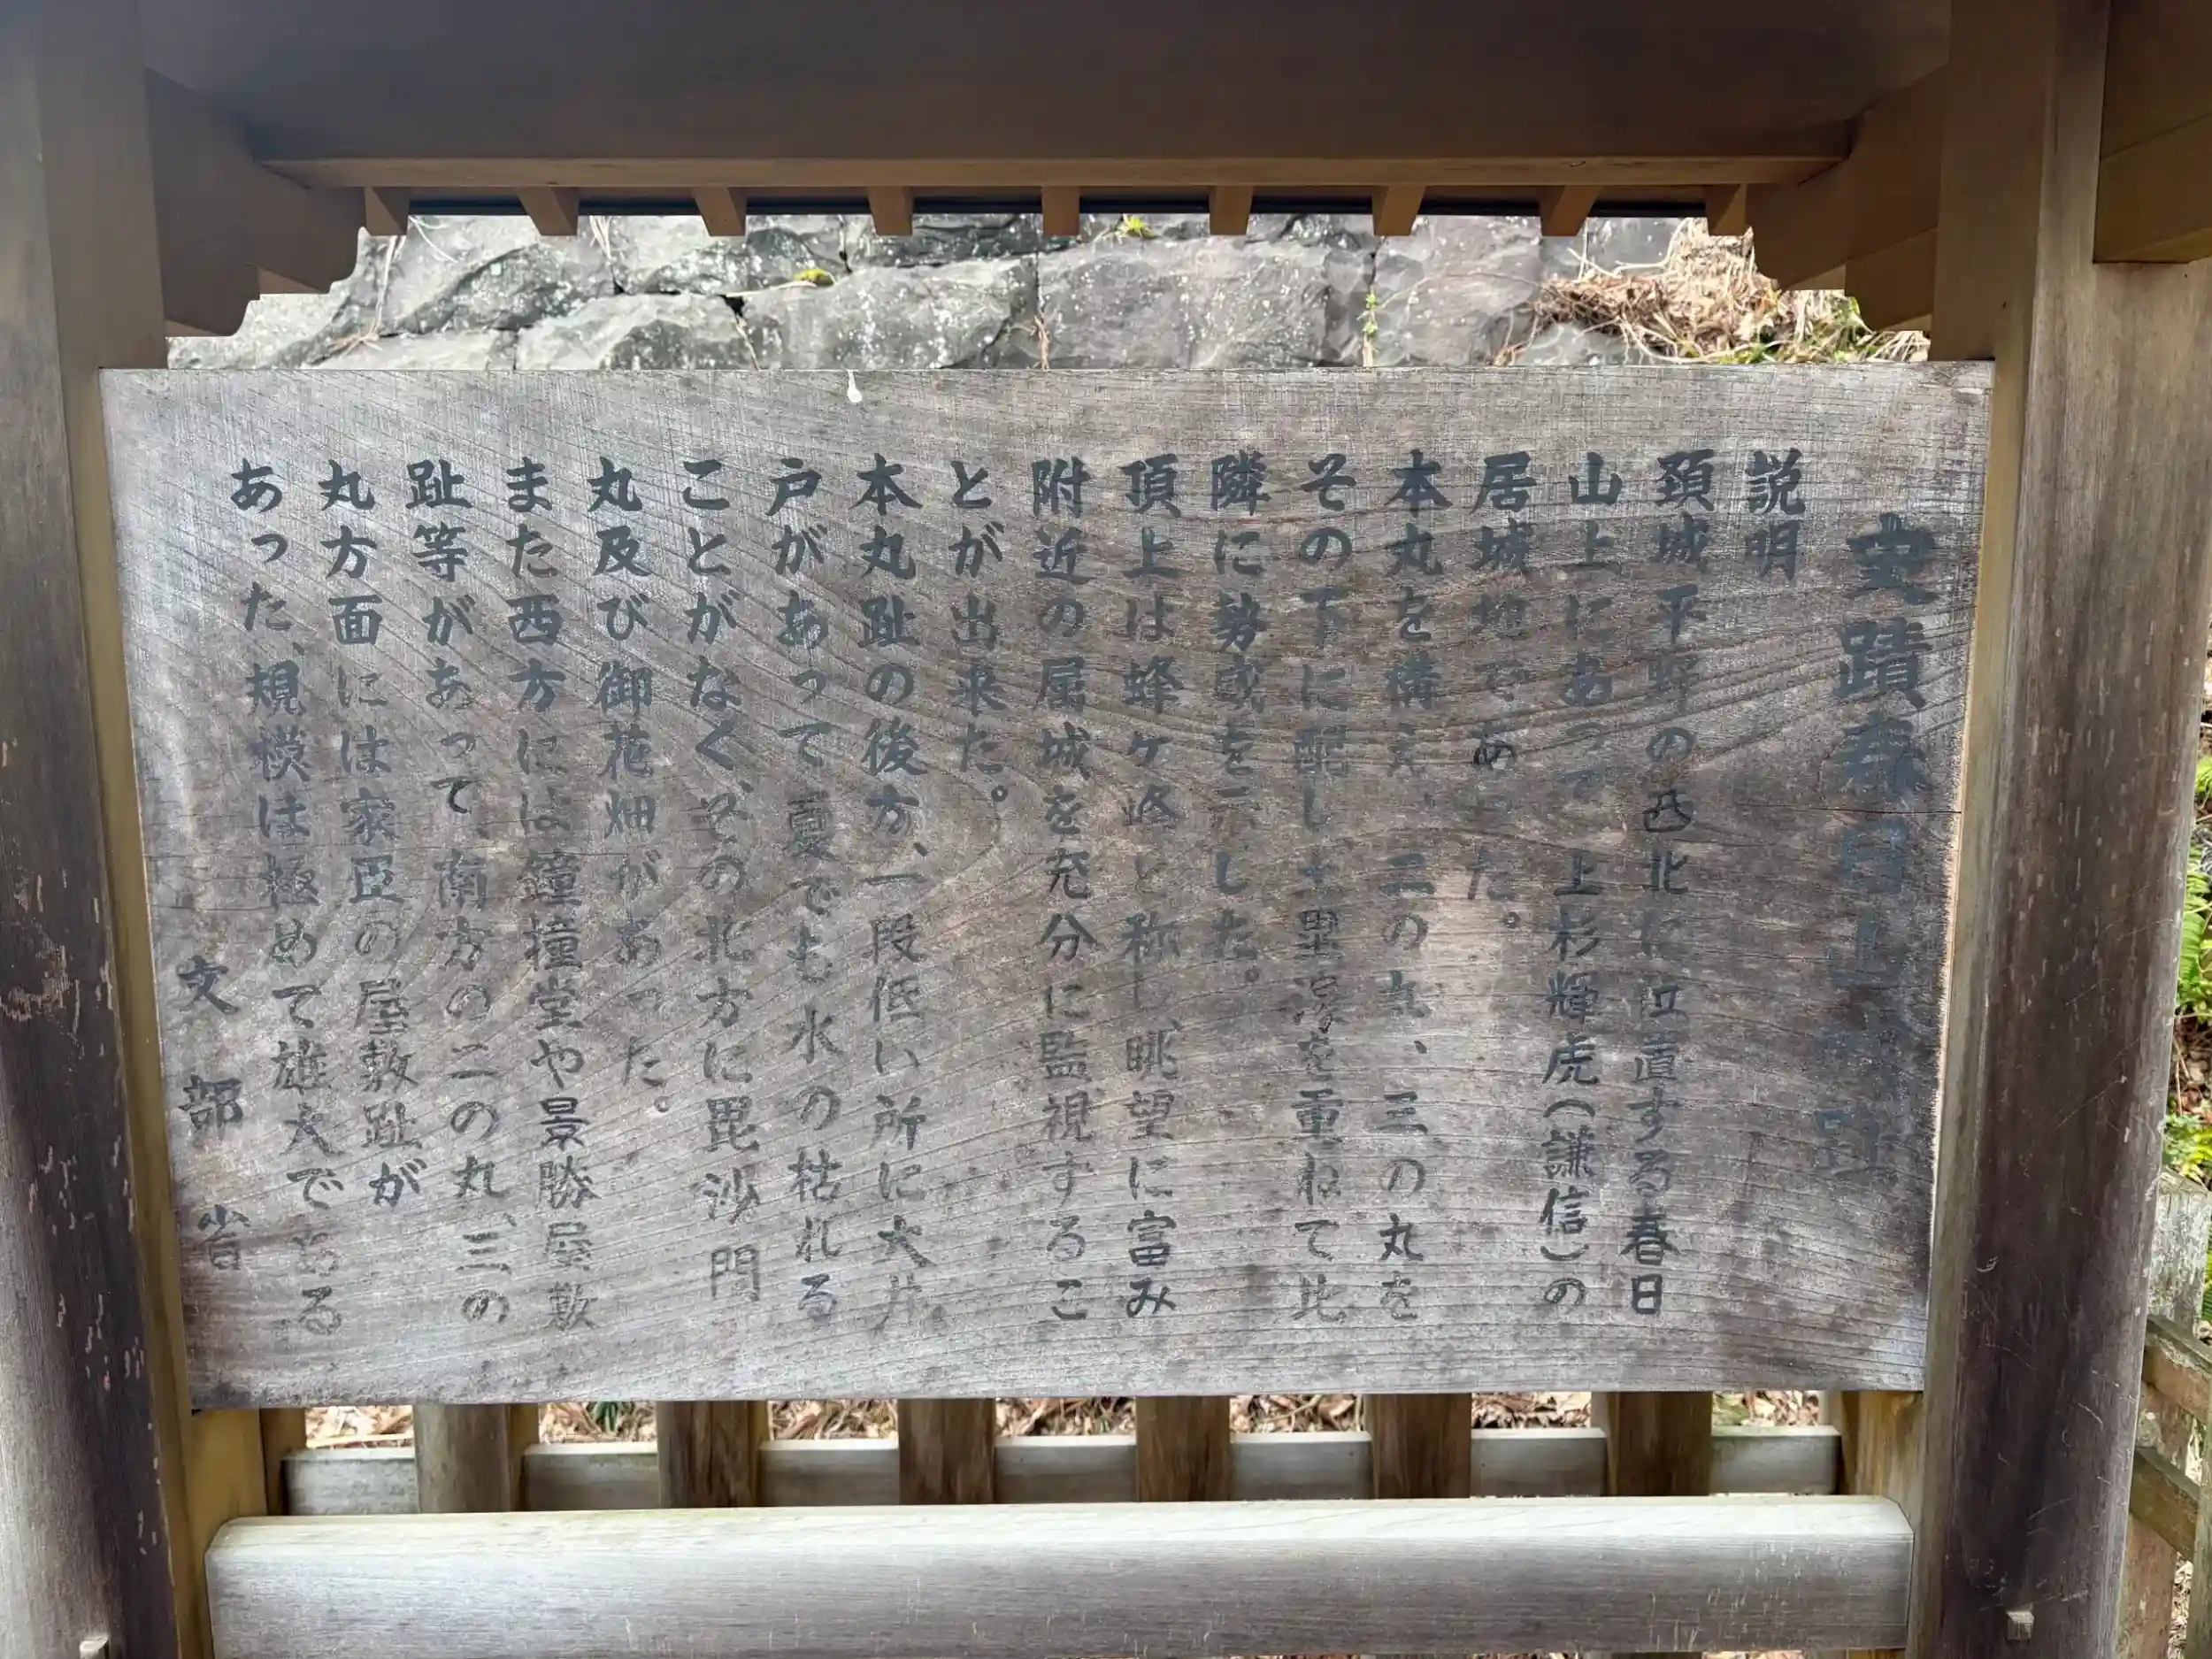 史蹟春日山城趾
説明
頚城平野の西北に位置する春日
山上にあって上杉輝虎(謙信)の
居城地であった。
本丸を構え、二の丸、三の丸を
その下に配し土塁湟を重ねて比
隣に勢威を示した。
頂上は蜂ケ峰と称し、眺望に富み
附近の属城を充分に監視するこ
とが出来た。
本丸趾の後方、一段低い所に大井
戸があって夏でも水の枯れる
ことがなく、その北方に毘沙門
丸及び御花畑があった。
また西方には鐘撞堂や景勝屋敷
趾等があって、南方の二の丸、三の
丸方面には家臣の屋敷趾が
あった、規模は極めて雄大である
文部省